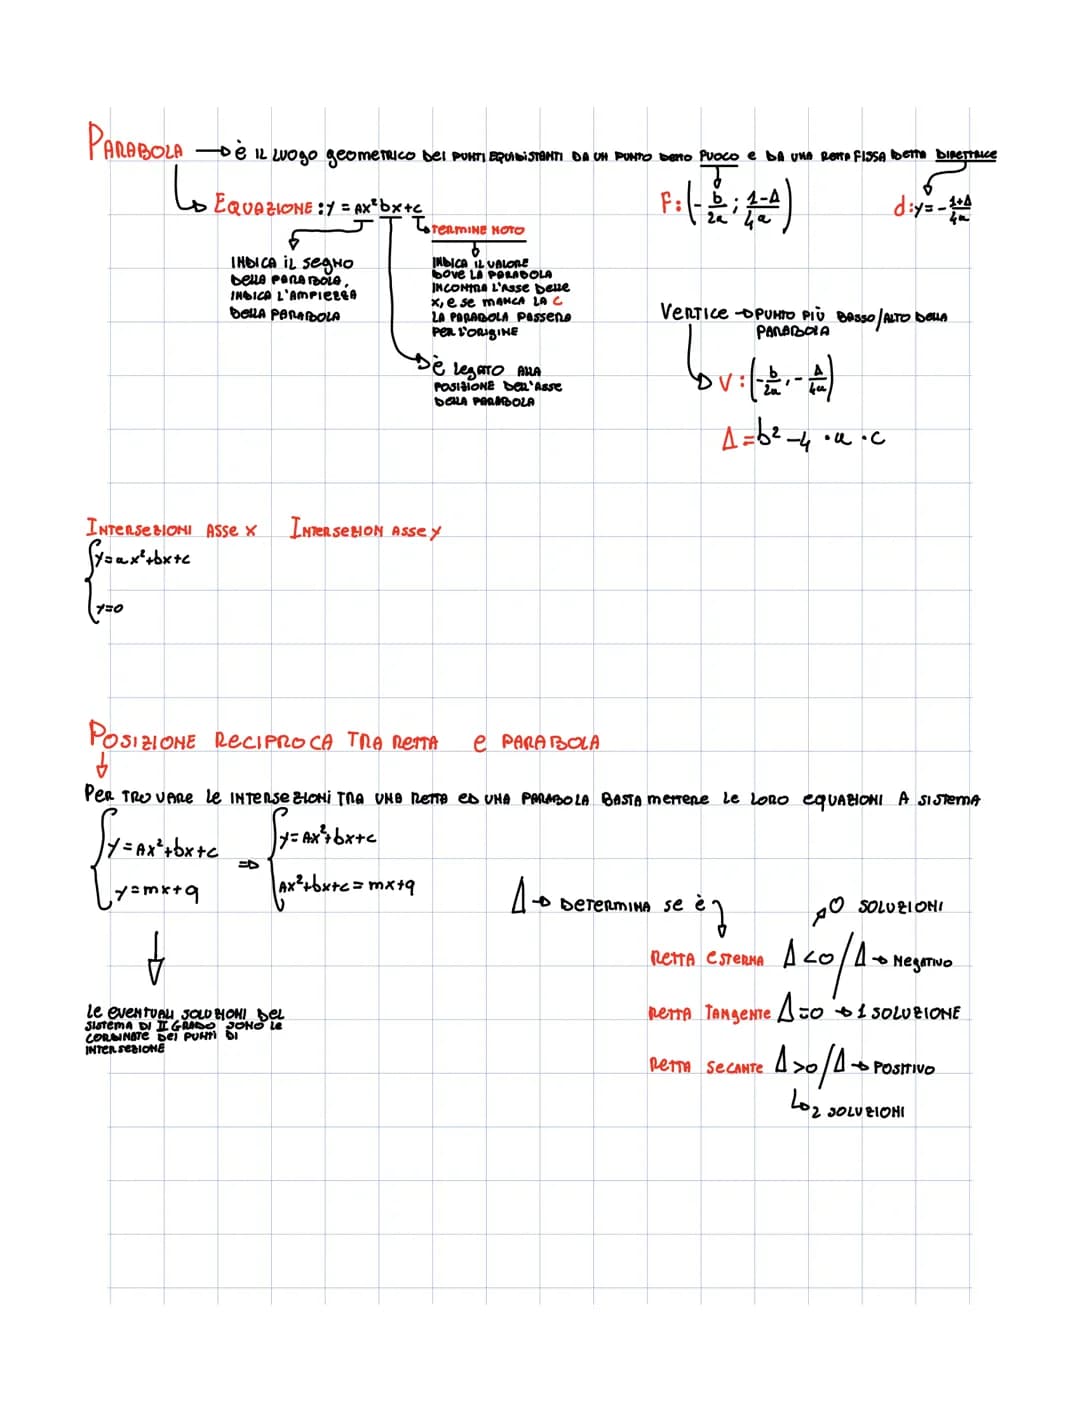 PARABOLA → è IL LUOGO geometrico DEI PUNTI EQUIDISTANTI DA UN PUNTO DETTO FUOCO e DA UNA RETTA FISSA DETTA DIRETTRICE
F: (-b/2a ; 1-Δ/4a)
d: y = -1+Δ/4a
EQUAZIONE: y = Ax² bx+c
TERMINE NOTO
INDICA IL SEGNO
DELLA PARABOLA,
INDICA L'AMPIEZZA
DELLA PARABOLA
INDICA IL VALORE
DOVE LA PARABOLA
INCONTRA L'ASSE DELLE
X, E SE MANCA LA C
LA PARABOLA PASSERA
PER L'ORIGINE
è LEGATO ALLA
POSIZIONE DELL'ASSE
DELLA PARABOLA
VERTICE → PUNTO PIÙ BASSO/ALTO DELLA
PARABOLA
V: (-b/2a, -Δ/4a)
Δ = b² - 4 · a · c
INTERSEZIONI ASSE X
y = ax²+bx+c
y=0
INTERSEZION ASSE Y
POSIZIONE RECIPROCA TRA RETTA e PARABOLA
PER TROVARE LE INTERSEZIONI TRA UNA RETTA ED UNA PARABOLA BASTA METTERE LE LORO EQUAZIONI A SISTEMA
y = Ax²+bx+c
y = mx+q
⇒
y = Ax²+bx+c
Ax²+bx+c = mx+q
LE EVENTUALI SOLUZIONI DEL
SISTEMA DI II GRADO SONO LE
CORDINATE DEI PUNTI DI
INTERSEZIONE
Δ → DETERMINA SE è
0 SOLUZIONI
RETTA ESTERNA Δ <0 / Δ → NEGATIVO
RETTA TANGENTE Δ =0 → 1 SOLUZIONE
RETTA SECANTE Δ >0 / Δ → POSITIVO
2 SOLUZIONI